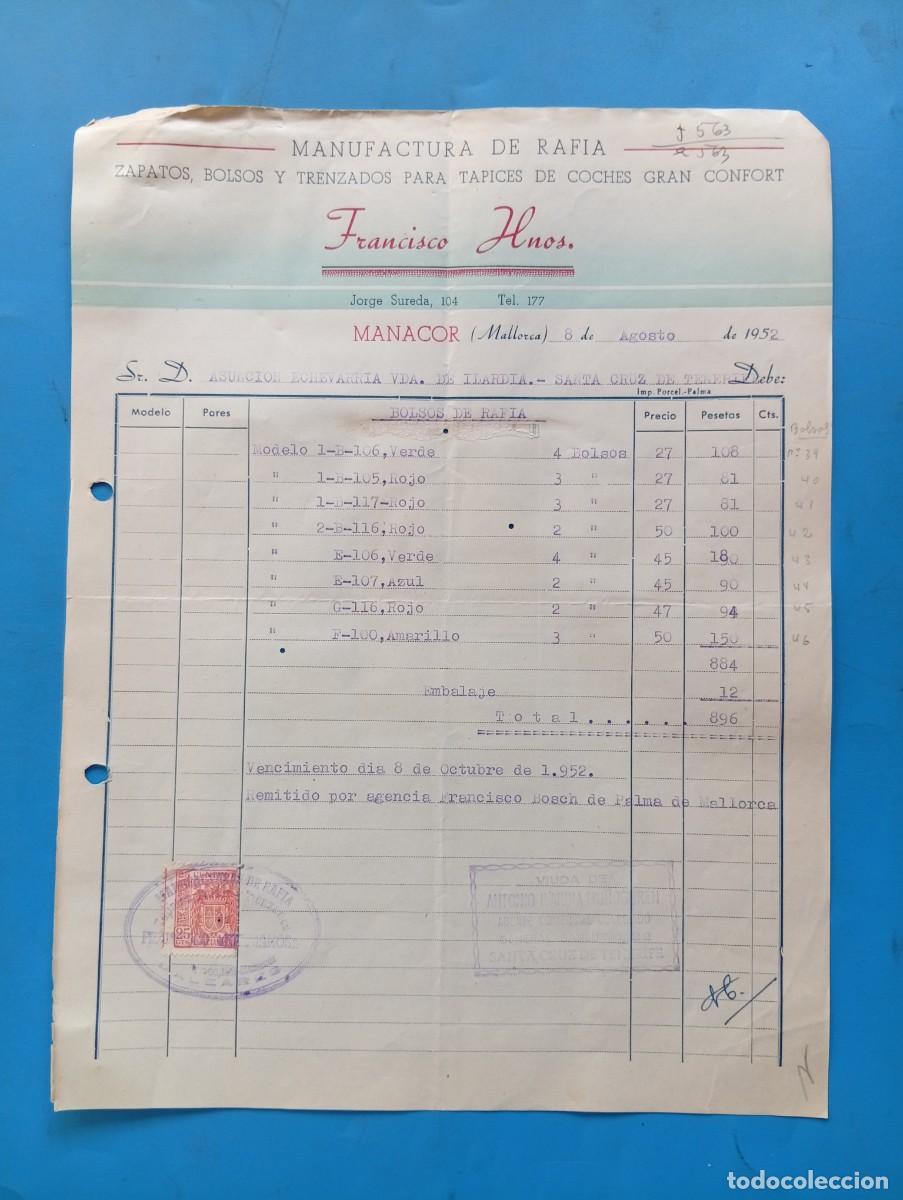 † 563
563
MANUFACTURA DE RAFIA
ZAPATOS, BOLSOS Y TRENZADOS PARA TAPICES DE COCHES GRAN CONFORT
Francisco Hnos.
Jorge Sureda, 104 Tel. 177
MANACOR (Mallorca) 8 de Agosto de 1952
Sr. D. ASUNCION ECHEVARRIA VDA. DE ILARDIA.- SANTA CRUZ DE TENERIFE Debe:
Imp. Porcel.-Palma
Modelo Pares BOLSOS DE RAFIA Precio Pesetas Cts.
Bolsos
Modelo 1-B-106,Verde 4 Bolsos 27 108 nº 39
" 1-B-105,Rojo 3 " 27 81 40
" 1-B-117-Rojo 3 " 27 81 41
" 2-B-116,Rojo 2 " 50 100 42
" E-106,Verde 4 " 45 180 43
" E-107,Azul 2 " 45 90 44
" G-116,Rojo 2 " 47 94 45
" F-100,Amarillo 3 " 50 150 46
884
Embalaje 12
Total...... 896
Vencimiento dia 8 de Octubre de 1.952.
Remitido por agencia Francisco Bosch de Palma de Mallorca
DE RAFIA
25 CTS
BALEARES
VIUDA DE
ANTONIO
SANTA CRUZ DE TENERIFE
todocoleccion